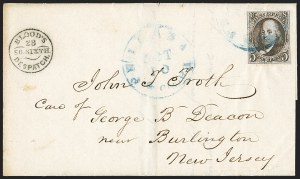 BLOOD'S
28
SO. SIXTH
DESPATCH
5 5
John J. Troth
Care of George B Deacon
near Burlington
New Jersey